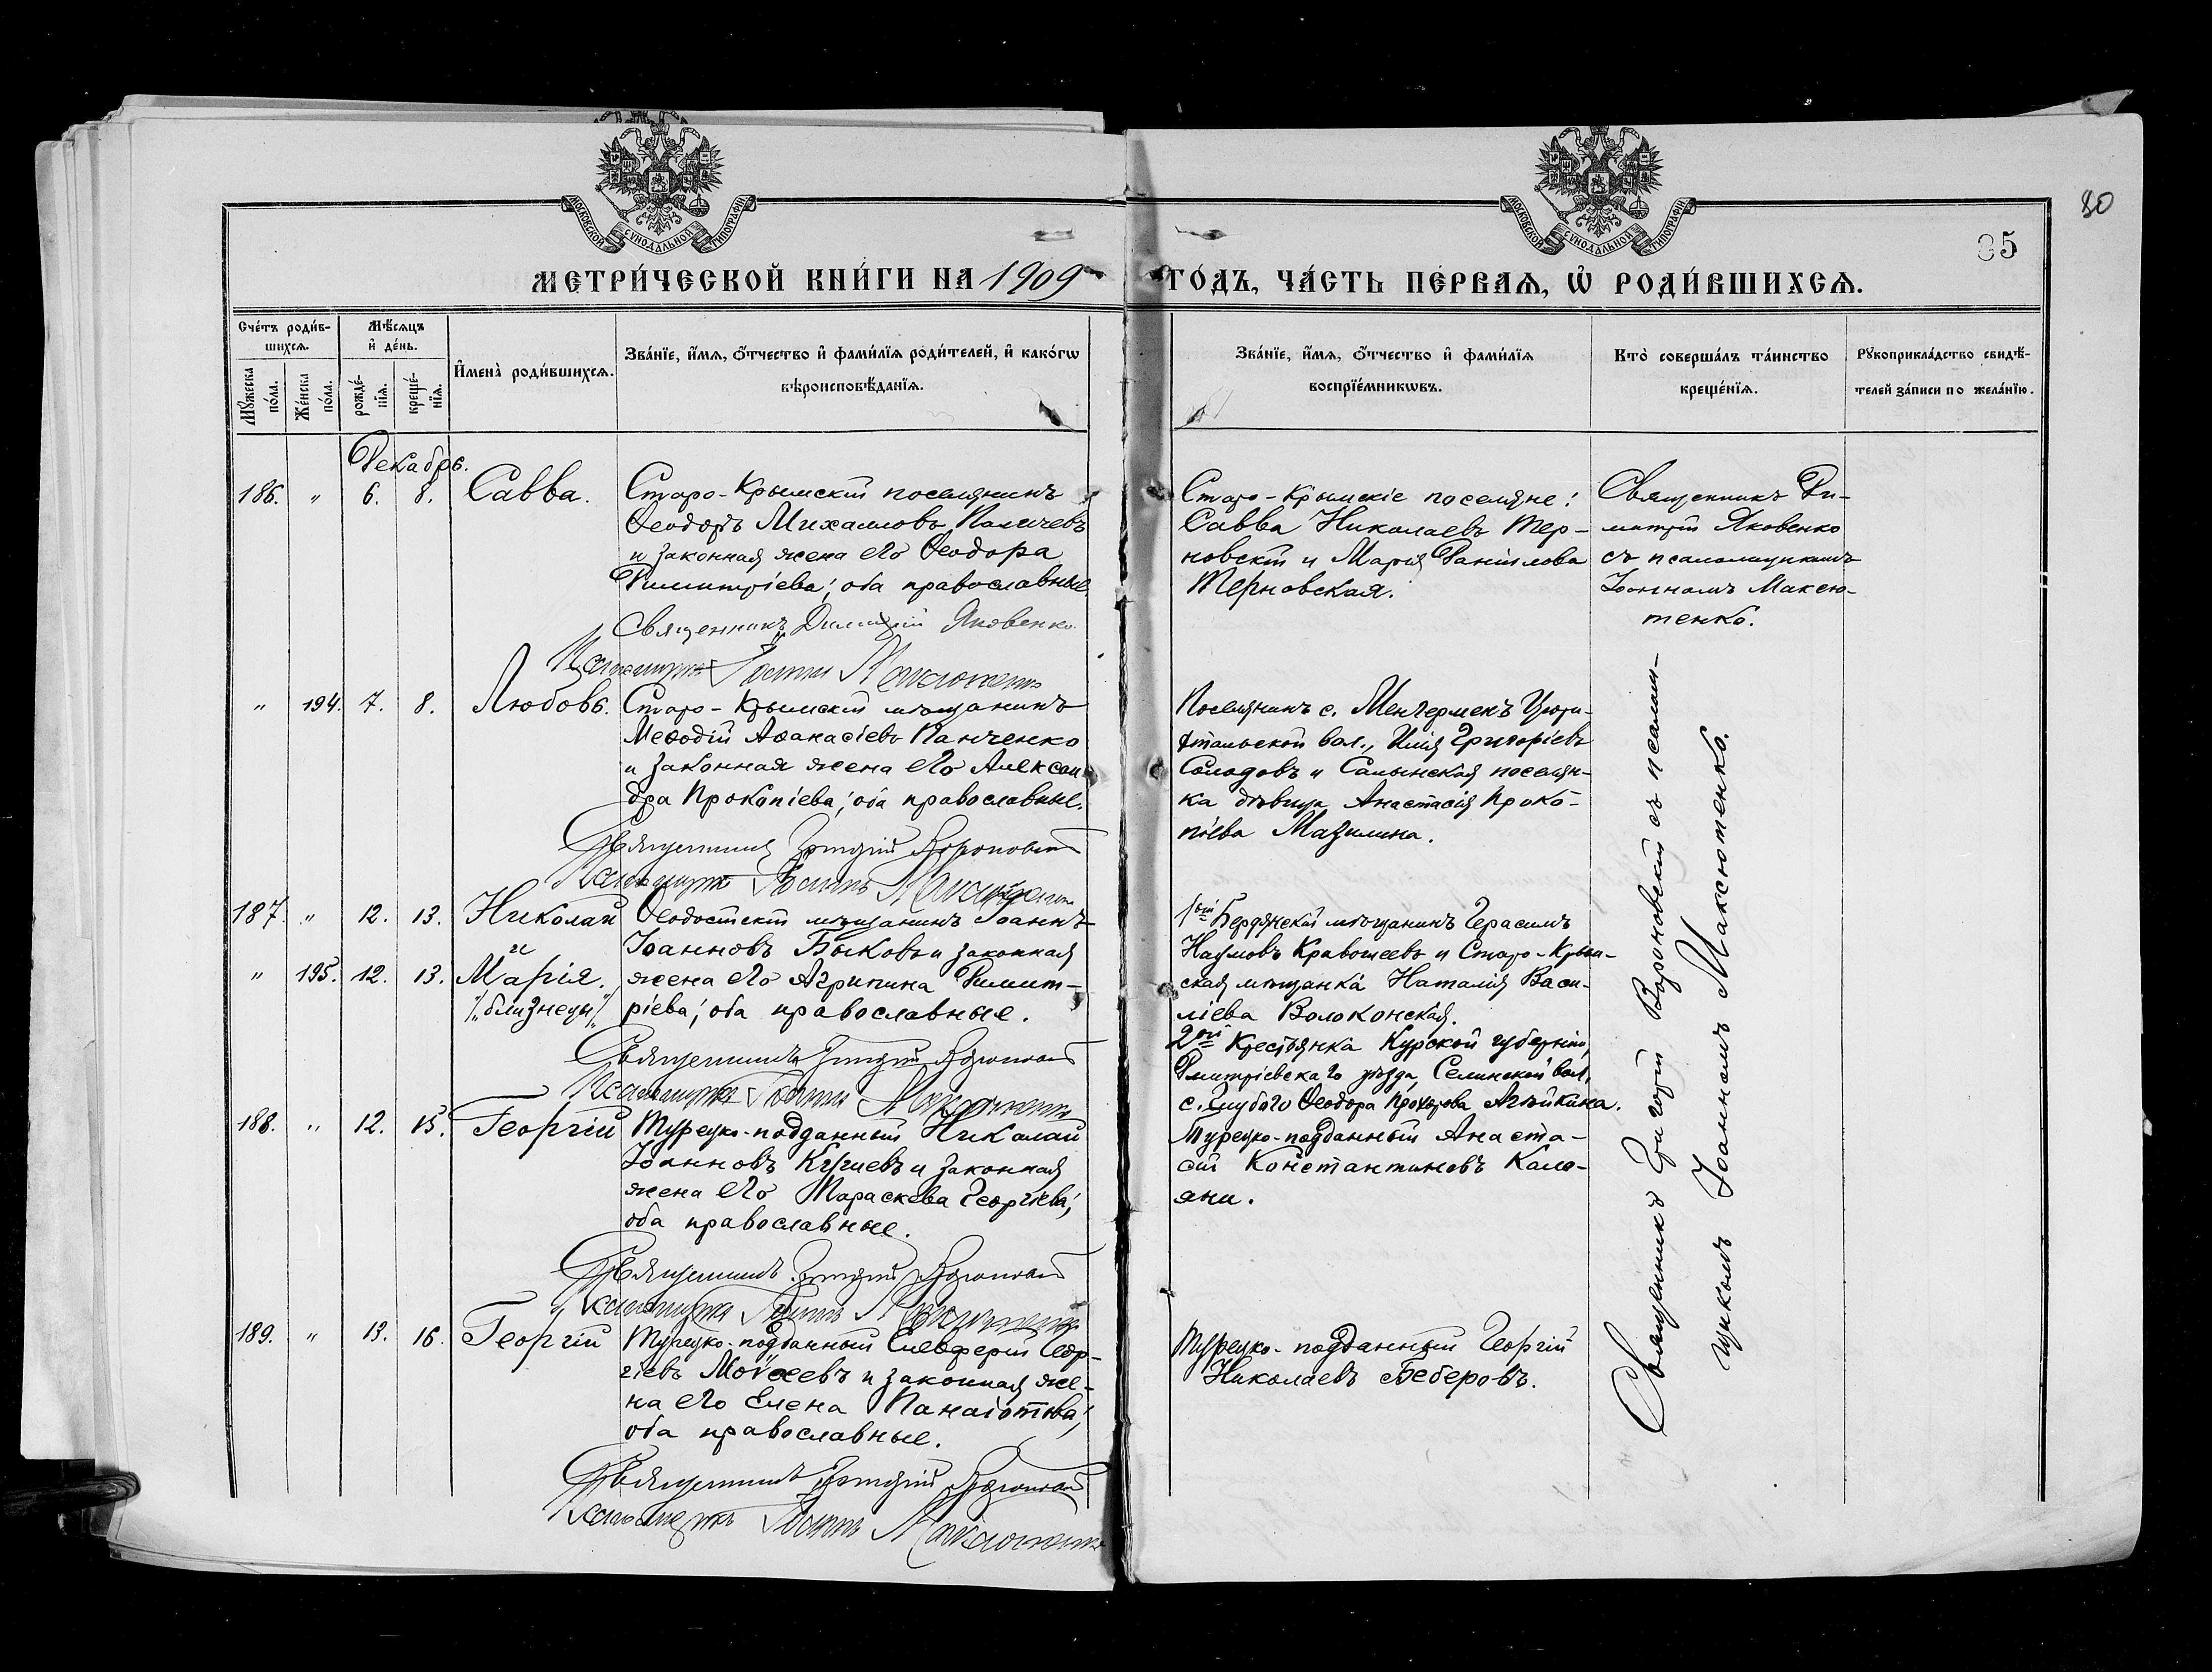 80
85
МОСКОВСКОЙ СѴНОДАЛЬНОЙ ТИПОГРАФІИ
МОСКОВСКОЙ СѴНОДАЛЬНОЙ ТИПОГРАФІИ
МЕТРИ́ЧЕСКОЙ КНИ́ГИ НА 1909
ГО́ДЪ, ЧА́СТЬ ПЕ́РВАЯ, Ѡ҆ РОДИ́ВШИХСЯ.
Сче́тъ роди́в-
шихся.
Мѣ́сяцъ
и҆ де́нь.
Мꙋ́жеска по́ла.
Же́нска по́ла.
рожде́-
нїя.
креще́-
нїя.
И҆мена̀ роди́вшихся.
Зва́нїе, и҆́мя, ѻ҆́тчество и҆ фами́лїя роди́телей, и҆ како́гѡ
вѣроисповѣ́данїя.
Зва́нїе, и҆́мя, ѻ҆́тчество и҆ фами́лїя
воспрїе́мникѡвъ.
Кто̀ соверша́лъ та́инство
креще́нїя.
Рꙋкоприкла́дство свидѣ́-
телей за́писи по жела́нїю.
Декабрь.
186. " 6. 8. Савва.
Старо-Крымскій поселянинъ
Ѳеодоръ Михаиловъ Паличевъ
и законная жена его Ѳеодора
Димитріева; оба православные
Священникъ Димитрій Яковенко
Псаломщикъ Іоаннъ Максютенко
Старо-Крымскіе поселяне:
Савва Николаевъ Тер-
новскій и Марія Даніилова
Терновская.
Священникъ Ди-
митрій Яковенко
съ псаломщикомъ
Іоанномъ Максю-
тенко.
" 194. 7. 8. Любовь.
Старо-Крымскій мѣщанинъ
Меѳодій Аѳанасіевъ Панченко
и законная жена его Алексан-
дра Прокопіева; оба православные.
Священникъ Григорій Вороновскій
Псаломщикъ Іоаннъ Максютенко
Поселянинъ с. Менгерменъ
вол., Илія Григоріевъ
Солодовъ и Салынская поселян-
ка дѣвица Анастасія Проко-
піева Мазилина.
187. " 12. 13. Николай
и
" 195. 12. 13. Марія.
/"близнецы"/
Ѳеодосійскій мѣщанинъ Іоаннъ
Іоанновъ Быковъ и законная
жена его Агрипина Димит-
ріева; оба православные.
Священникъ Григорій Вороновскій
Псаломщикъ Іоаннъ Максютенко
1ый Бердянскій мѣщанинъ Герасимъ
Наумовъ Кравошеевъ и Старо-Крым-
ская мѣщанка Наталія Васи-
ліева Волоконская.
2ой Крестьянка Курской губерніи,
Дмитріевскаго уѣзда, Селинской вол.
с. Глубого Ѳеодора Прохорова Агѣйкина.
188. " 12. 15. Георгій
Турецко-подданный Николай
Іоанновъ и законная
жена его Параскева Георгіева;
оба православные.
Священникъ Григорій Вороновскій
Псаломщикъ Іоаннъ Максютенко
Турецко-подданный Анаста-
сій Константиновъ Кало-
яни.
189. " 13. 16. Георгій
Турецко-подданный Елевферій Геор-
гіевъ Моѵсеевъ и законная же-
на его Елена Панаіотова;
оба православные.
Священникъ Григорій Вороновскій
Псаломщикъ Іоаннъ Максютенко
Турецко-подданный Георгій
Николаевъ Беберовъ.
Священникъ Григорій Вороновскій съ псалом-
щикомъ Іоанномъ Максютенко.